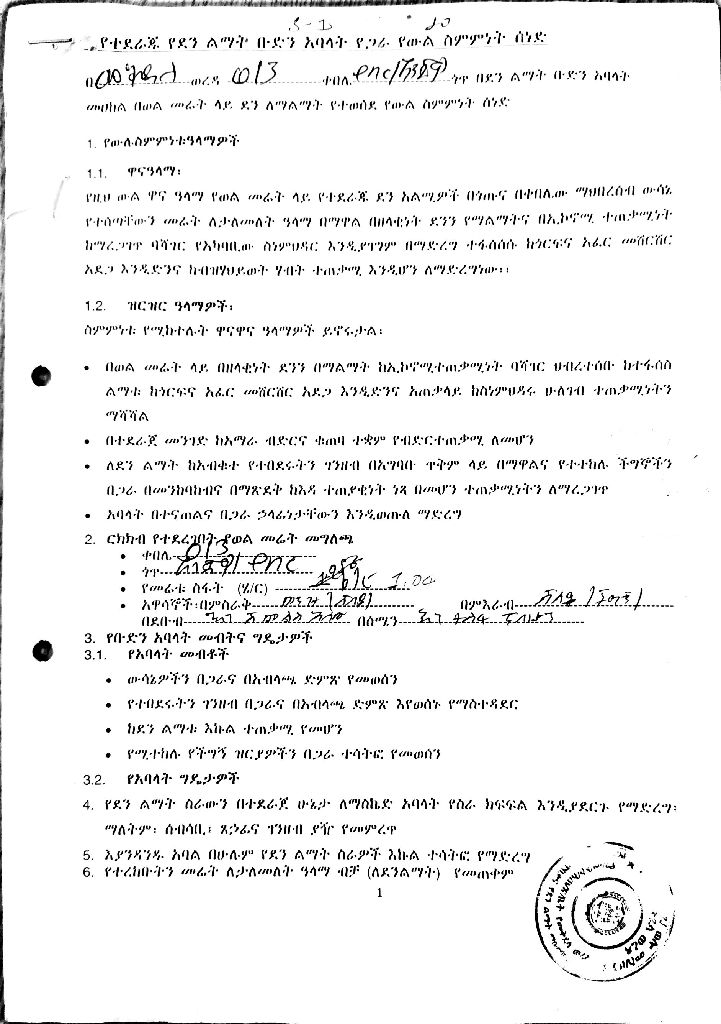 የተደራጁ የደን ልማት ቡድን አባላት የጋራ የውል ስምምነት ሰነድ
በ ወረዳ 013 ቀበሌ ጎጥ በደን ልማት ቡድን አባላት
መሀከል በወል መሬት ላይ ደን ለማልማት የተወሰደ የውል ስምምነት ሰነድ
1. የውሉስምምነቱዓላማዎች
1.1. ዋናዓላማ፡
የዚህ ውል ዋና ዓላማ የወል መሬት ላይ የተደራጁ ደን አልሚዎች በጎጡና በቀበሌው ማህበረሰብ ውሳኔ
የተሰማቸውን መሬት ለታለመለት ዓላማ በማዋል በዘላቂነት ደንን የማልማትና በኢኮኖሚ ተጠቃሚነት
ከማረጋገጥ ባሻገር የአካባቢው ስነምህዳር እንዲያገግም በማድረግ ተፋሰሰሱ ከጎርፍና አፈር መሸርሸር
አደጋ እንዲድንና ከብዝሃህይወት ሃብት ተጠቃሚ እንዲሆን ለማድረግነው፡፡
1.2. ዝርዝር ዓላማዎች፡
ስምምነቱ የሚከተሉት ዋናዋና ዓላማዎች ይኖሩታል፡
• በወል መሬት ላይ በዘላቂነት ደንን በማልማት ከኢኮኖሚተጠቃሚነት ባሻገር ህብረተሰቡ ከተፋሰስ
ልማቱ ከጎርፍና አፈር መሸርሸር አደጋ እንዲድንና አጠቃላይ ከስነምህዳሩ ሁለገብ ተጠቃሚነትን
ማሻሻል
• በተደራጀ መንገድ ከአማራ ብድርና ቁጠባ ተቋም የብድርተጠቃሚ ለመሆን
• ለደን ልማት ከአብቁተ የተበደሩትን ገንዘብ በአግባቡ ጥቅም ላይ በማዋልና የተተከሉ ችግኞችን
በጋራ በመንከባከብና በማጽደቅ ከእዳ ተጠያቂነት ነጻ በመሆን ተጠቃሚነትን ለማረጋገጥ
• አባላት በተናጠልና በጋራ ኃላፊነታቸውን እንዲወጡለ ማድረግ
2. ርክክብ የተደረገበት የወል መሬት መግለጫ
• ቀበሌ 013
• ጎጥ
• የመሬቱ ስፋት (ሄ/ር) 1.00
• አዋሳኞች፡በምስራቅ በምእራብ
በደቡብ በሰሜን
3. የቡድን አባላት መብትና ግዴታዎች
3.1. የአባላት መብቶች
• ውሳኔዎችን በጋራና በአብላጫ ድምጽ የመወሰን
• የተበደሩትን ገንዘብ በጋራና በአብላጫ ድምጽ እየወሰኑ የማስተዳደር
• ከደን ልማቱ እኩል ተጠቃሚ የመሆን
• የሚተከሉ የችግኝ ዝርያዎችን በጋራ ተሳትፎ የመወሰን
3.2. የአባላት ግዴታዎች
4. የደን ልማት ስራውን በተደራጀ ሁኔታ ለማስኬድ አባላት የስራ ክፍፍል እንዲያደርጉ የማድረግ፡
ማለትም፡ ሰብሳቢ፡ ጸኃፊና ገንዘብ ያዥ የመምረጥ
5. እያንዳንዱ አባል በሁሉም የደን ልማት ስራዎች እኩል ተሳትፎ የማድረግ
6. የተረከቡትን መሬት ለታለመለት ዓላማ ብቻ (ለደንልማት) የመጠቀም
1